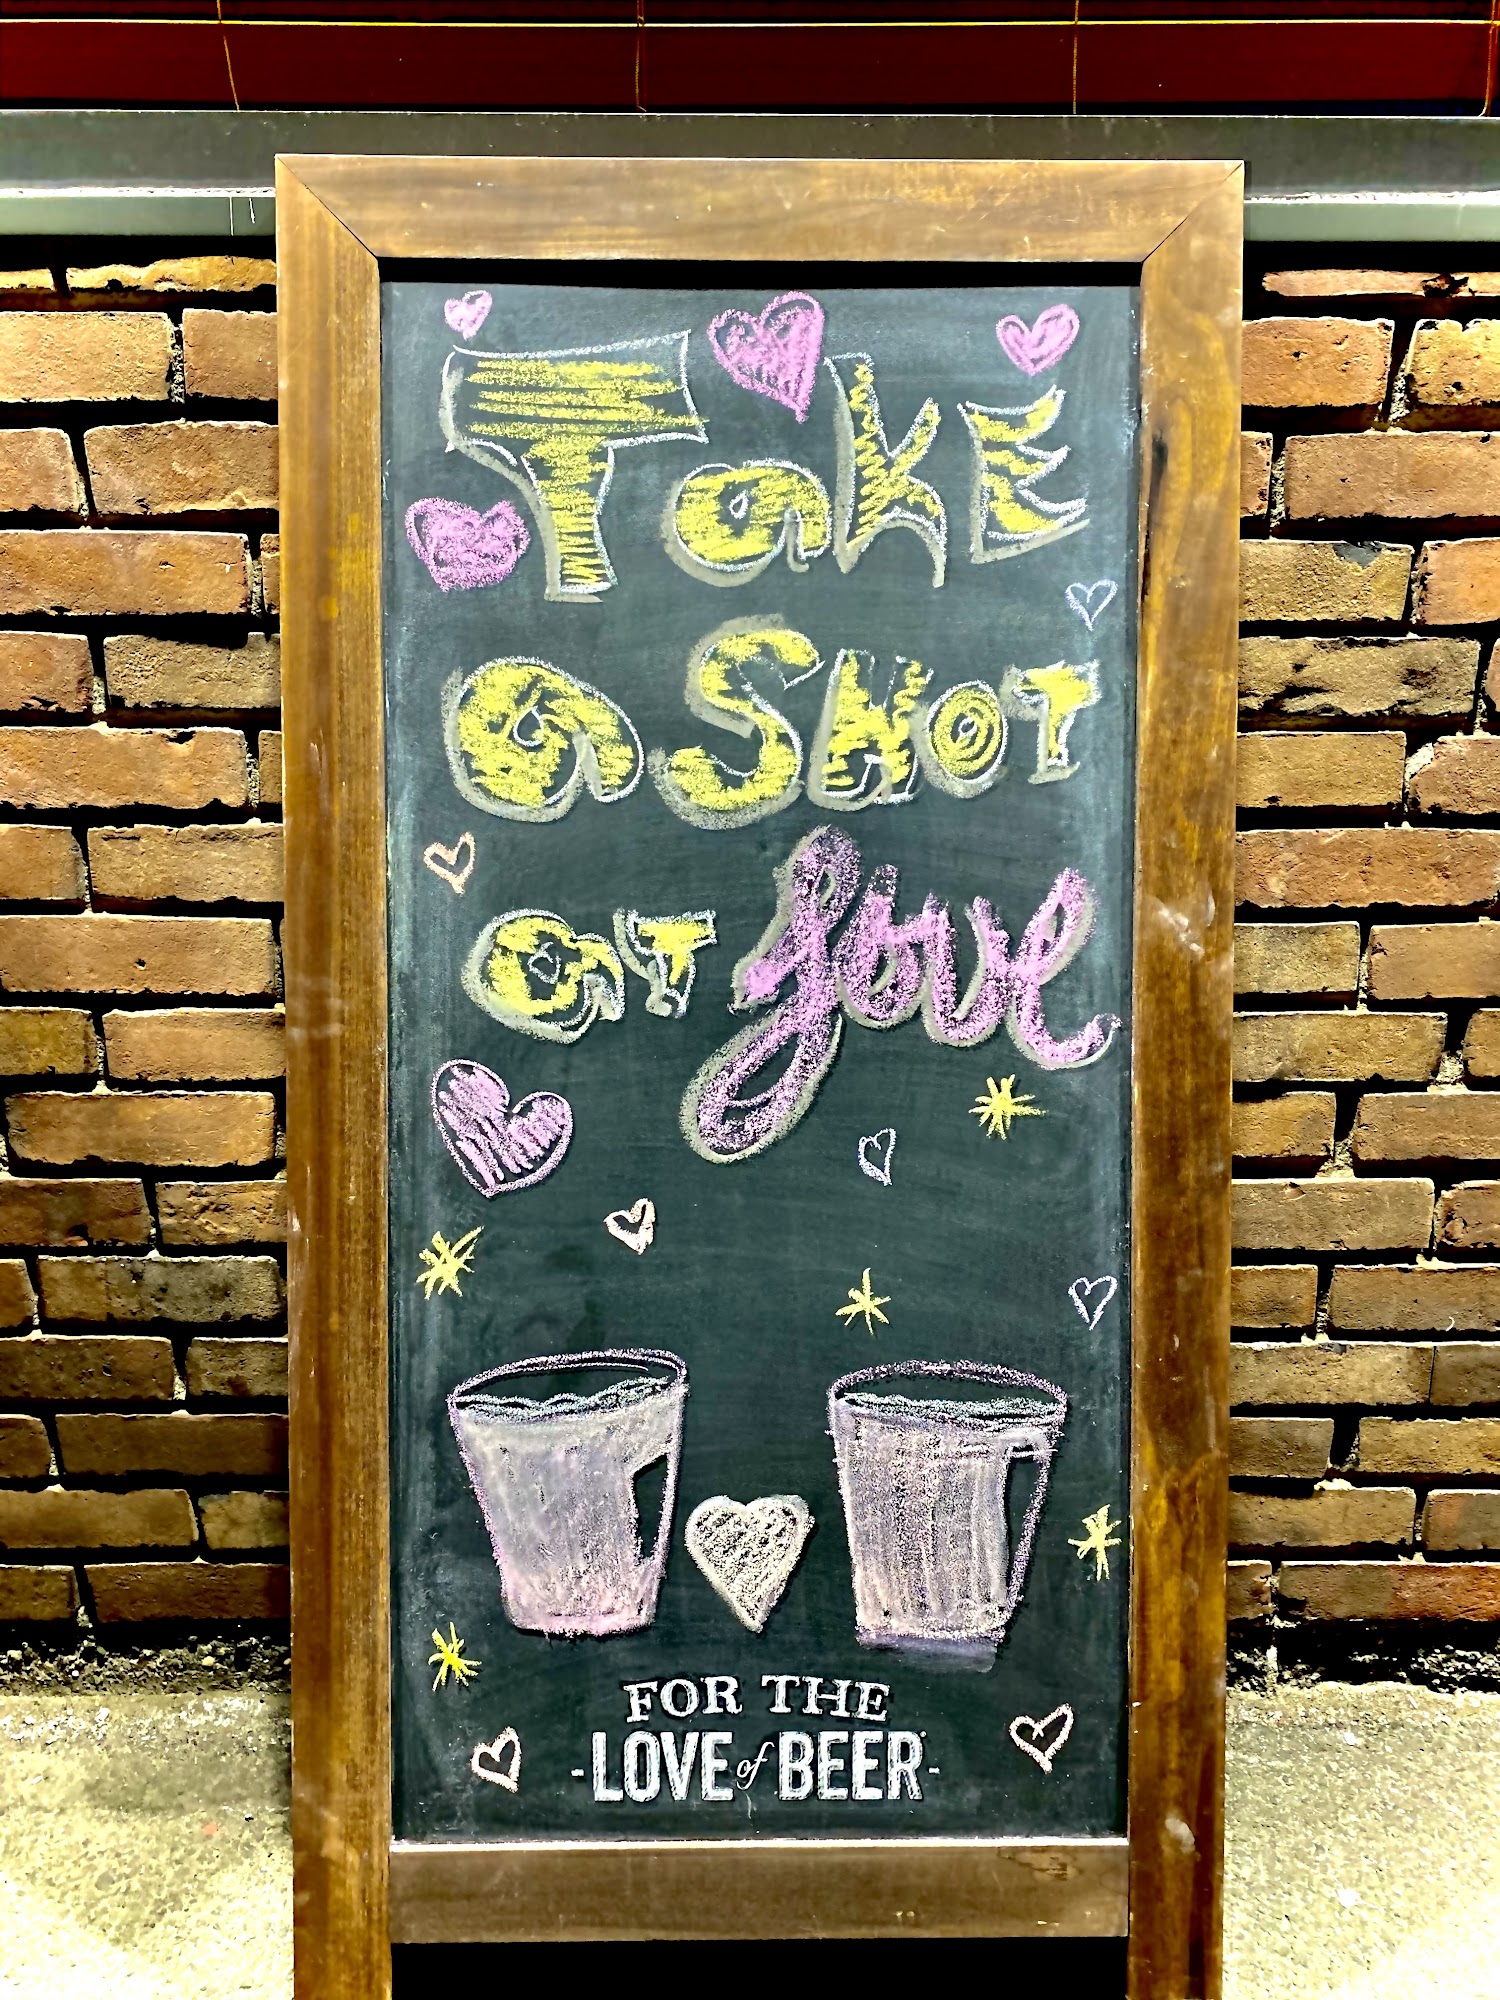 Take
a SHOT
at love
FOR THE
-LOVE of BEER-